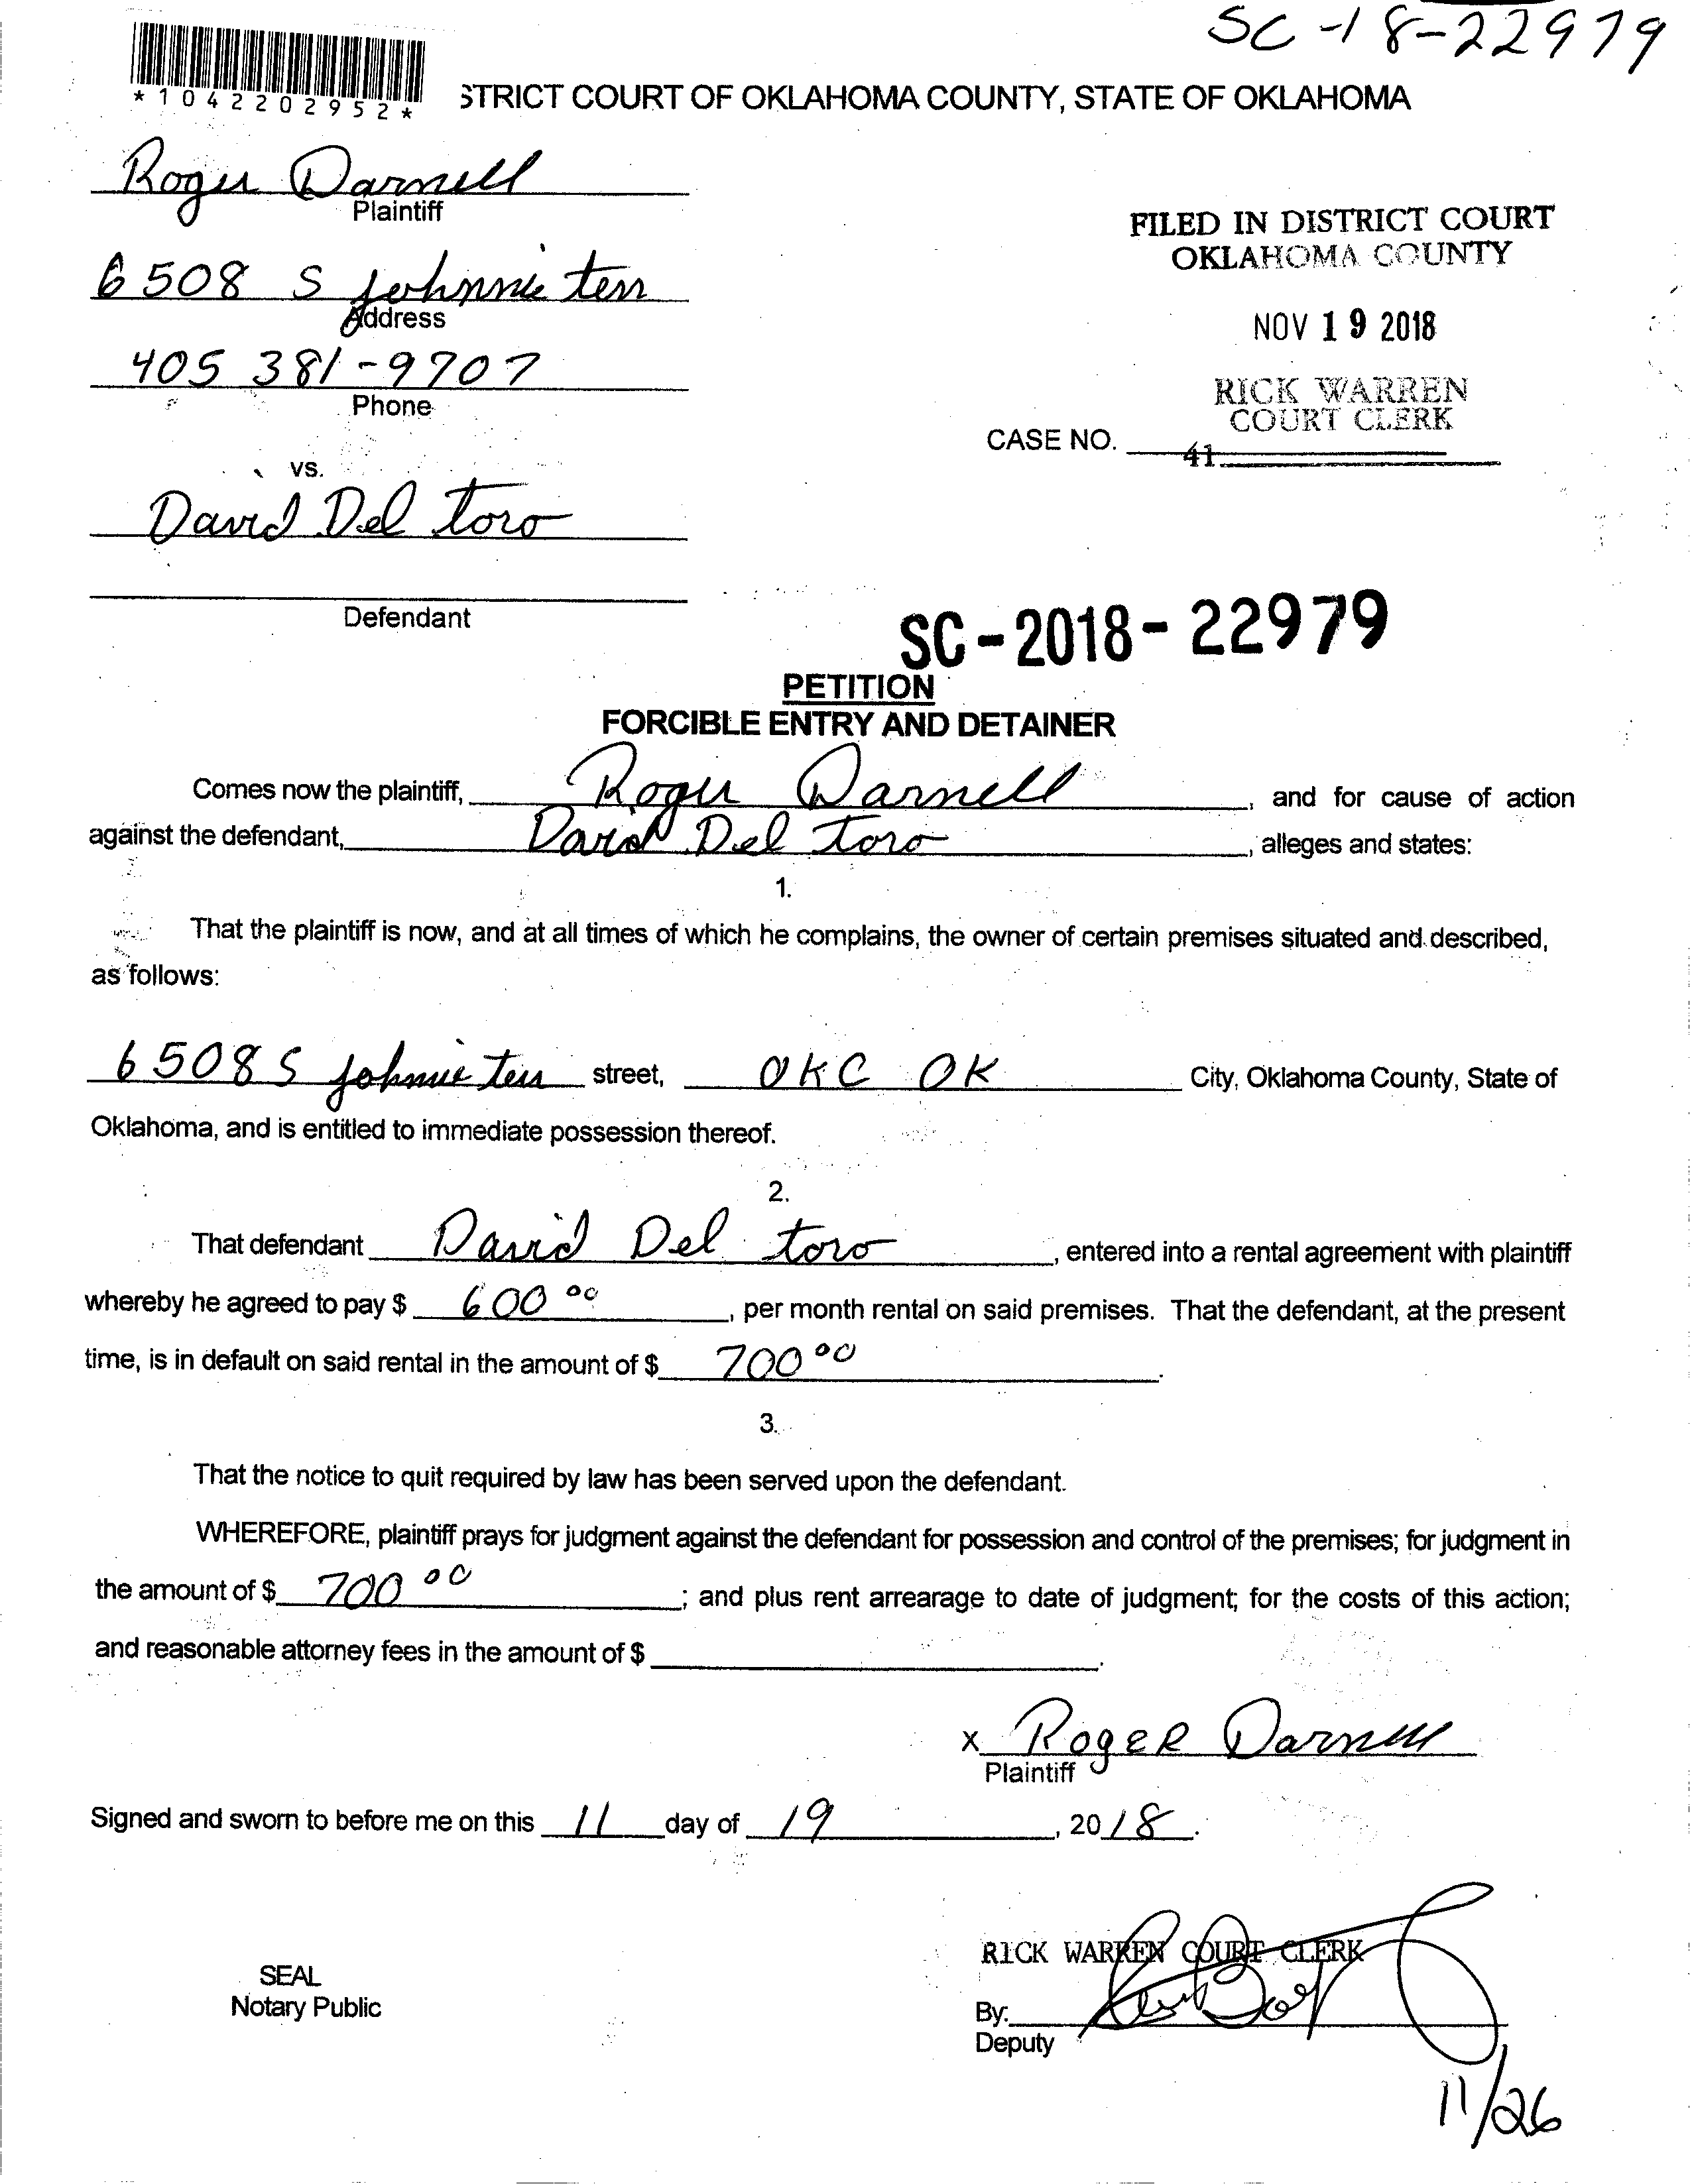 SC-18-22979
*1042202952*
STRICT COURT OF OKLAHOMA COUNTY, STATE OF OKLAHOMA
Roger Darnell
Plaintiff
FILED IN DISTRICT COURT
OKLAHOMA COUNTY
6508 S Johnnie terr
Address
NOV 19 2018
405 381-9707
Phone
RICK WARREN
COURT CLERK
CASE NO.
41
vs.
David Del toro
Defendant
SC-2018-22979
PETITION
FORCIBLE ENTRY AND DETAINER
Comes now the plaintiff, Roger Darnell, and for cause of action
against the defendant, David Del toro, alleges and states:
1.
That the plaintiff is now, and at all times of which he complains, the owner of certain premises situated and described,
as follows:
6508 S Johnnie Terr street, OKC OK City, Oklahoma County, State of
Oklahoma, and is entitled to immediate possession thereof.
2.
That defendant David Del toro, entered into a rental agreement with plaintiff
whereby he agreed to pay $ 600 00, per month rental on said premises. That the defendant, at the present
time, is in default on said rental in the amount of $ 700 00.
3.
That the notice to quit required by law has been served upon the defendant.
WHEREFORE, plaintiff prays for judgment against the defendant for possession and control of the premises; for judgment in
the amount of $ 700 00; and plus rent arrearage to date of judgment; for the costs of this action;
and reasonable attorney fees in the amount of $ .
X Roger Darnell
Plaintiff
Signed and sworn to before me on this 11 day of 19, 2018.
RICK WARREN COURT CLERK
SEAL
Notary Public
By:
Deputy
11/26